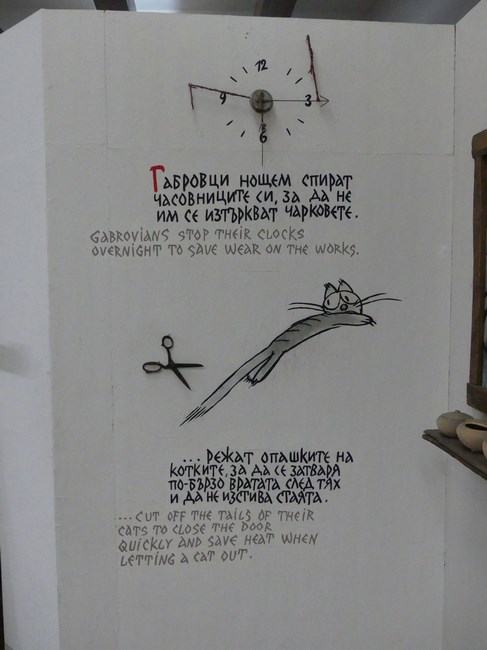 12
9 3
6
Габровци нощем спират
часовниците си, за да не
им се изтъркват чарковете.
GABROVIANS STOP THEIR CLOCKS
OVERNIGHT TO SAVE WEAR ON THE WORKS.
... режат опашките на
котките, за да се затваря
по-бързо вратата след тях
и да не изстива стаята.
... CUT OFF THE TAILS OF THEIR
CATS TO CLOSE THE DOOR
QUICKLY AND SAVE HEAT WHEN
LETTING A CAT OUT.